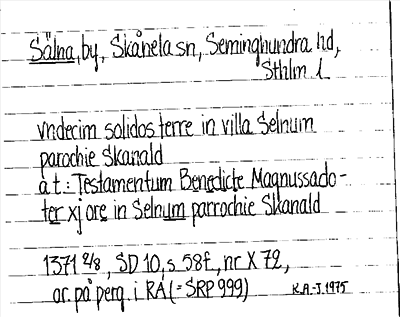 Sälna, by, Skånela sn, Seminghundra hd,
Sthlm l
vndecim solidos terre in villa Selnum
parochie Skanald
å t.: Testamentum Benedicte Magnussado-
ter xj ore in Selnum parrochie Skanald
1371 2/8, SD 10, s 58f, nr X 72,
or. på perg. i RA (= SRP 999) K.A.-J. 1975